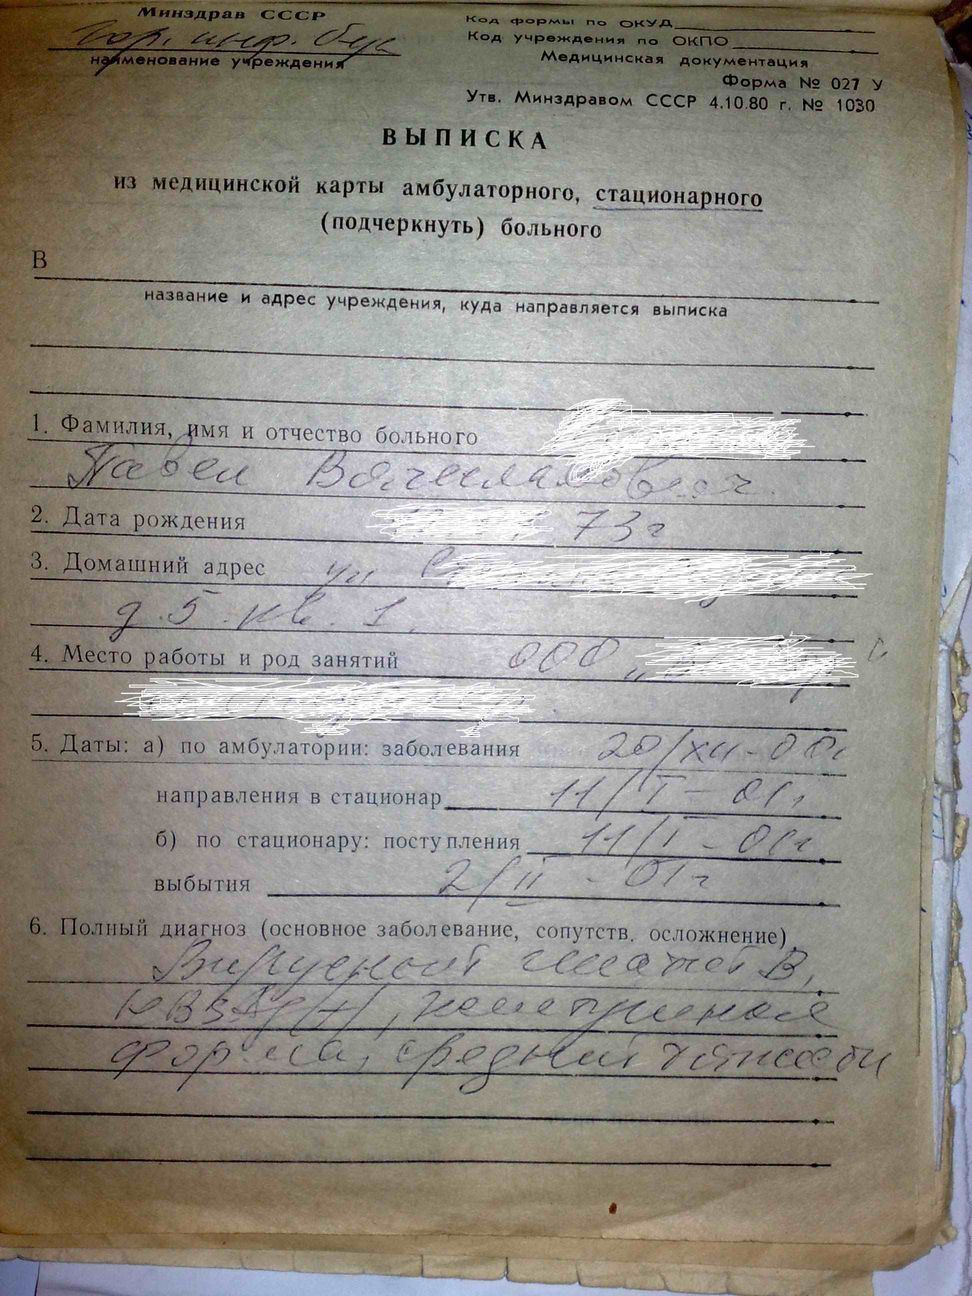 Минздрав СССР
Гор. инф. бук
наименование учреждения
Код формы по ОКУД
Код учреждения по ОКПО
Медицинская документация
Форма № 027 У
Утв. Минздравом СССР 4.10.80 г. № 1030
ВЫПИСКА
из медицинской карты амбулаторного, стационарного
(подчеркнуть) больного
В
название и адрес учреждения, куда направляется выписка
1. Фамилия, имя и отчество больного
Павел Вячеславович
2. Дата рождения 73г
3. Домашний адрес ул
д. 5. кв. 1.
4. Место работы и род занятий ООО „
5. Даты: а) по амбулатории: заболевания 20/XII-00г
направления в стационар 11/I-01г
б) по стационару: поступления 11/I-01г
выбытия 2/II-01г
6. Полный диагноз (основное заболевание, сопутств. осложнение)
Вирусный гепатит В,
(+), желтушная
форма, средней тяжести